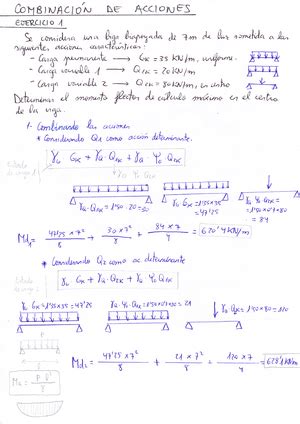 COMBINACIÓN DE ACCIONES
EJERCICIO 1
Se considera una viga biapoyada de 7m de luz sometida a las
siguientes acciones características:
- Carga permanente → Gk = 35 KN/m, uniforme.
- Carga variable 1 → Q1k = 20 KN/m
- Carga variable 2 → Q2k = 80 KN/m, en centro
Determinar el momento flector de cálculo máximo en el centro
de la viga.
1- Combinando las acciones
* Considerando Q1 como acción determinante.
γG · Gk + γQ · Q1k + γQ · Ψ0 Q2k
γG · Gk = 1'35 × 35 = 47'25
γQ · Q1k = 1'50 · 20 = 30
= 84
Md1 = 47'25 × 7² / 8 + 30 × 7² / 8 + 84 × 7 / 4 =
* Considerando Q2 como ac determinante
γG · Gk + γQ · Q2k + γQ Ψ0 Q1k
γG · Gk = 1'35 × 35 = 47'25
γQ · Ψ0 · Q1k = 1'50 × 0'7 × 20 = 21
γQ Q2k = 1'50 × 80 = 120
Md2 = 47'25 × 7² / 8 + 21 × 7² / 8 + 120 × 7 / 4 =